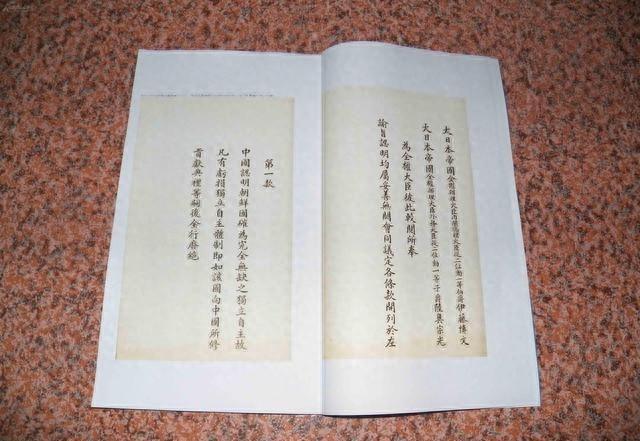 大日本帝國全權辦理大臣內閣總理大臣從二位勳一等伯爵伊藤博文
大日本帝國全權辦理大臣外務大臣從二位勳一等子爵陸奧宗光
為全權大臣彼此較閱所奉
諭旨認明均屬妥善無闕會同議定各條款開列於左
第一款
中國認明朝鮮國確為完全無缺之獨立自主故
凡有虧損獨立自主體制即如該國向中國所修
貢獻典禮等嗣後全行廢絕